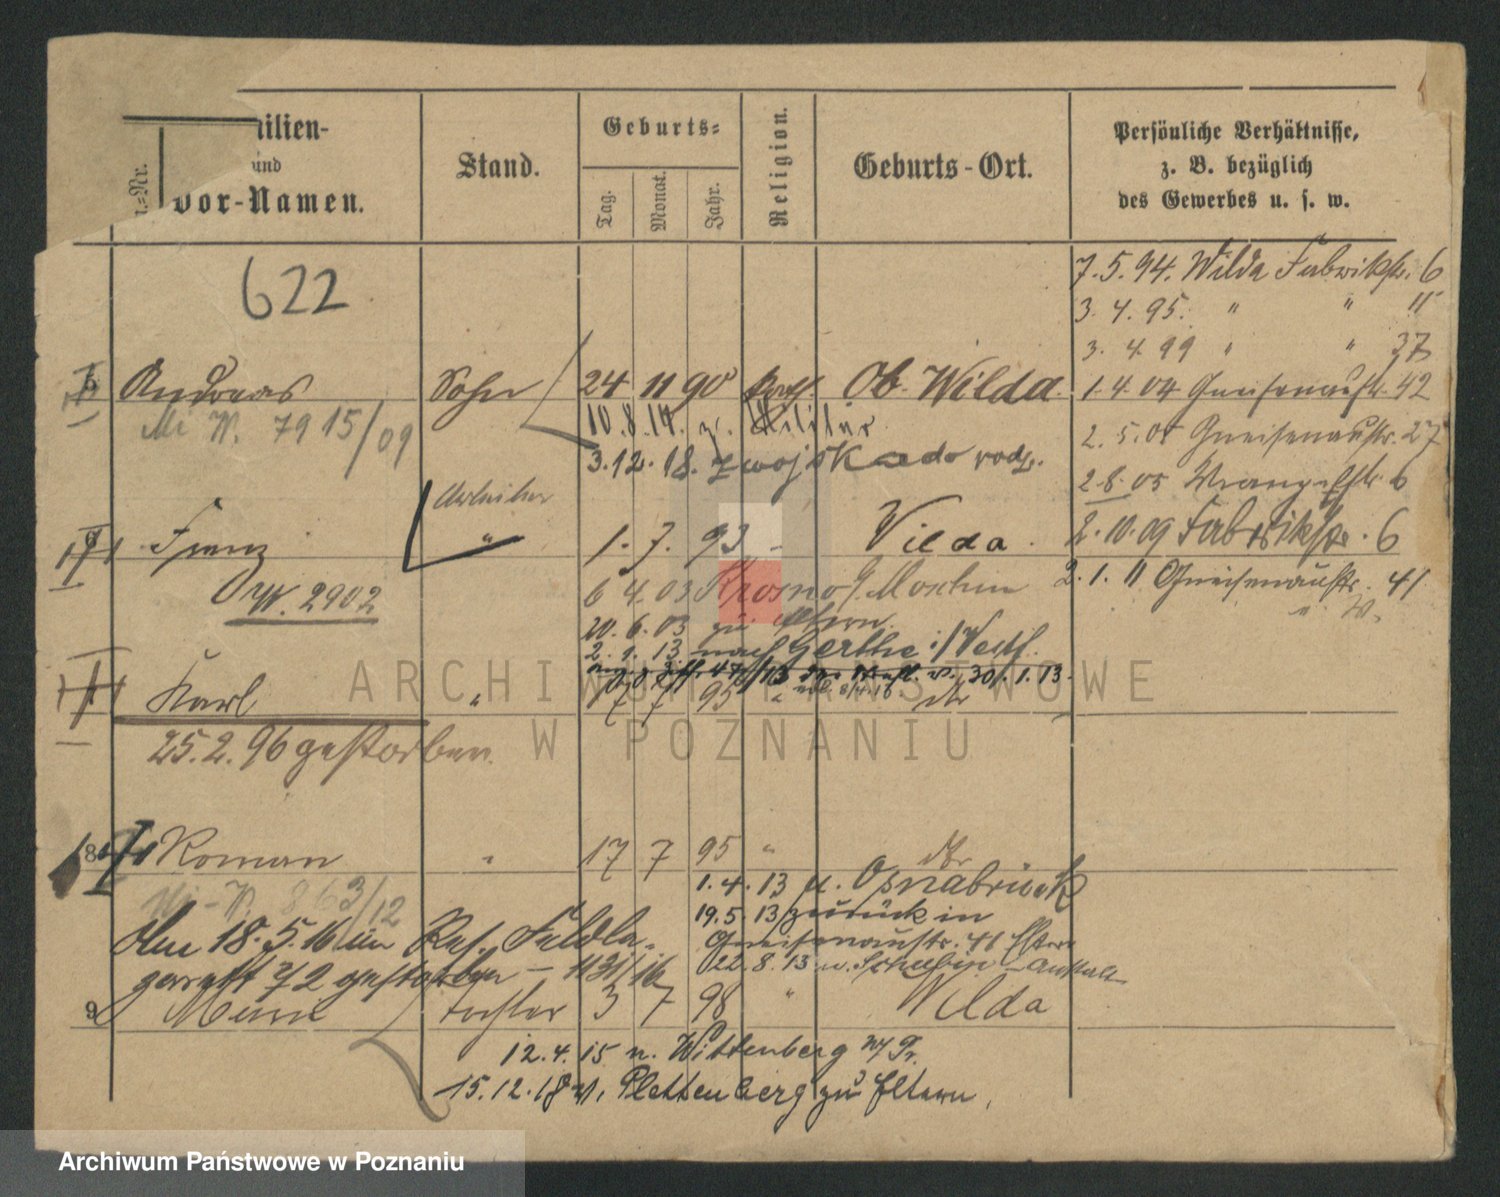 ilien-
und
Vor-Namen.
Stand.
Geburts-
Tag.
Monat.
Jahr.
Religion.
Geburts-Ort.
Persönliche Verhältnisse,
z. B. bezüglich
des Gewerbes u. s. w.
622
7.5.94. Wilda Fabrikstr. 6
3.4.95. " " 11
3.4.99 " " 37
Andreas Sohn 24 11 90 kath. Ob. Wilda.
1.4.04 Gneisenaustr. 42
Mi W. 79 15/09
10.8.14. z. Militär
2.5.05 Gneisenaustr. 27
3.12.18. z wojska do rodz.
2.8.05 Wrangelstr. 6
Arbeiter
Franz " 1. 7. 93 " Wilda.
2.10.09 Fabrikstr. 6
2.1.11 Gneisenaustr. 41
W. 2902
6 4.03 Krosno / Moschin
20.6.03 zu Eltern.
2.1.13 nach Gerthe i/Westf.
30.1.13.
Karl " 17 7 95 " dto
25.2.96 gestorben.
8 Roman " 17 7 95 " dto
1.4.13 n. Osnabrück
863/12
19.5.13 zurück in
Gneisenaustr. 41 Eltern
Am 18.5.16 im Res. Feldla-
22.8.13 n.
garett 72 gestorben - 1131/16
9 Marie Tochter 3 7 98 " Wilda
12.4.15 n. Wittenberg
15.12.18 v. Plettenberg zu Eltern.
ARCHIWUM PAŃSTWOWE
W POZNANIU
Archiwum Państwowe w Poznaniu